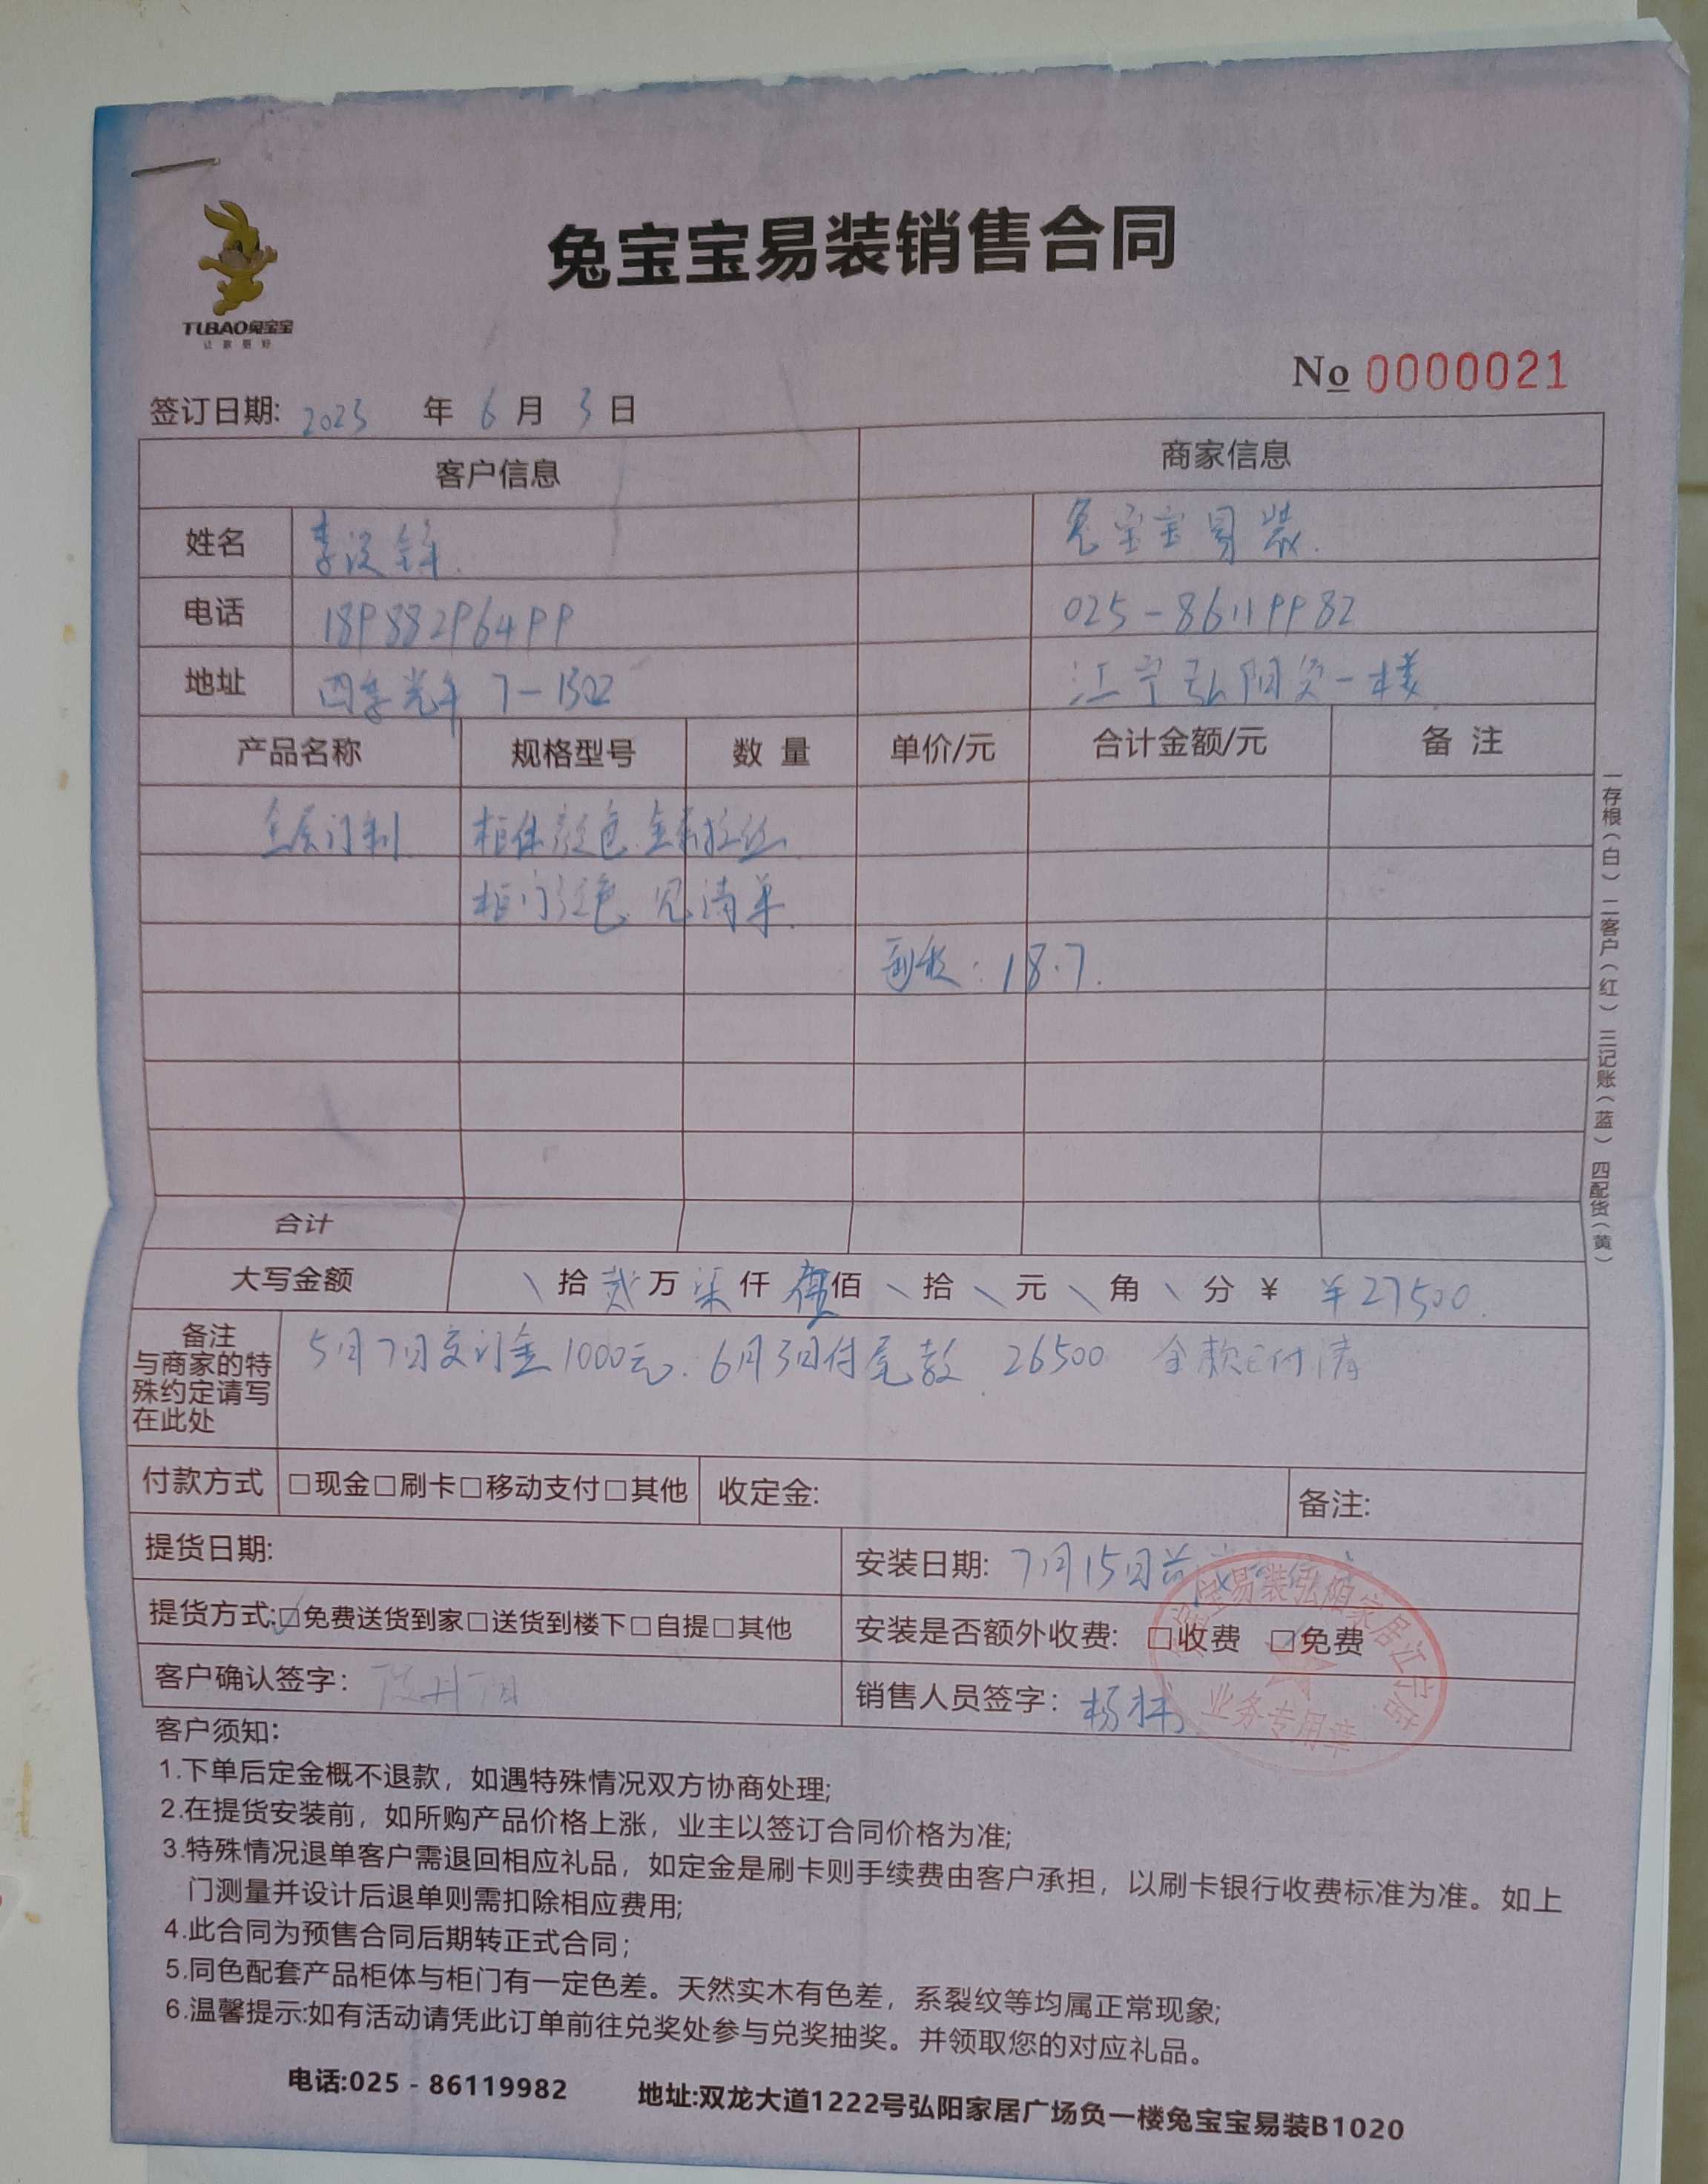 TUBAO兔宝宝
让家更好
兔宝宝易装销售合同
No 0000021
签订日期: 2023 年 6 月 3 日
客户信息 商家信息
姓名 李 兔宝宝易装.
电话 18988296499 025-86119982
地址 四季光年 7-1502 江宁弘阳负一楼
产品名称 规格型号 数量 单价/元 合计金额/元 备注
全屋订制 柜体颜色.金 拉丝
柜门颜色.见清单.
: 18.7.
合计
大写金额 \ 拾 贰 万 柒 仟 伍 佰 \ 拾 \ 元 \ 角 \ 分 ¥ ¥27500.
备注
与商家的特
殊约定请写
在此处
5月7日交订金1000元.6月3日付尾款.26500 全款已付清
付款方式 □现金□刷卡□移动支付□其他 收定金: 备注:
提货日期: 安装日期: 7月15日前
提货方式:☑免费送货到家□送货到楼下□自提□其他 安装是否额外收费: □收费 □免费
客户确认签字: 销售人员签字: 杨林
宝宝易装弘阳家居江宁店
业务专用章
客户须知:
1.下单后定金概不退款，如遇特殊情况双方协商处理;
2.在提货安装前，如所购产品价格上涨，业主以签订合同价格为准;
3.特殊情况退单客户需退回相应礼品，如定金是刷卡则手续费由客户承担，以刷卡银行收费标准为准。如上
门测量并设计后退单则需扣除相应费用;
4.此合同为预售合同后期转正式合同;
5.同色配套产品柜体与柜门有一定色差。天然实木有色差，系裂纹等均属正常现象;
6.温馨提示:如有活动请凭此订单前往兑奖处参与兑奖抽奖。并领取您的对应礼品。
电话:025 - 86119982 地址:双龙大道1222号弘阳家居广场负一楼兔宝宝易装B1020
一存根(白) 二客户(红) 三记账(蓝) 四配货(黄)